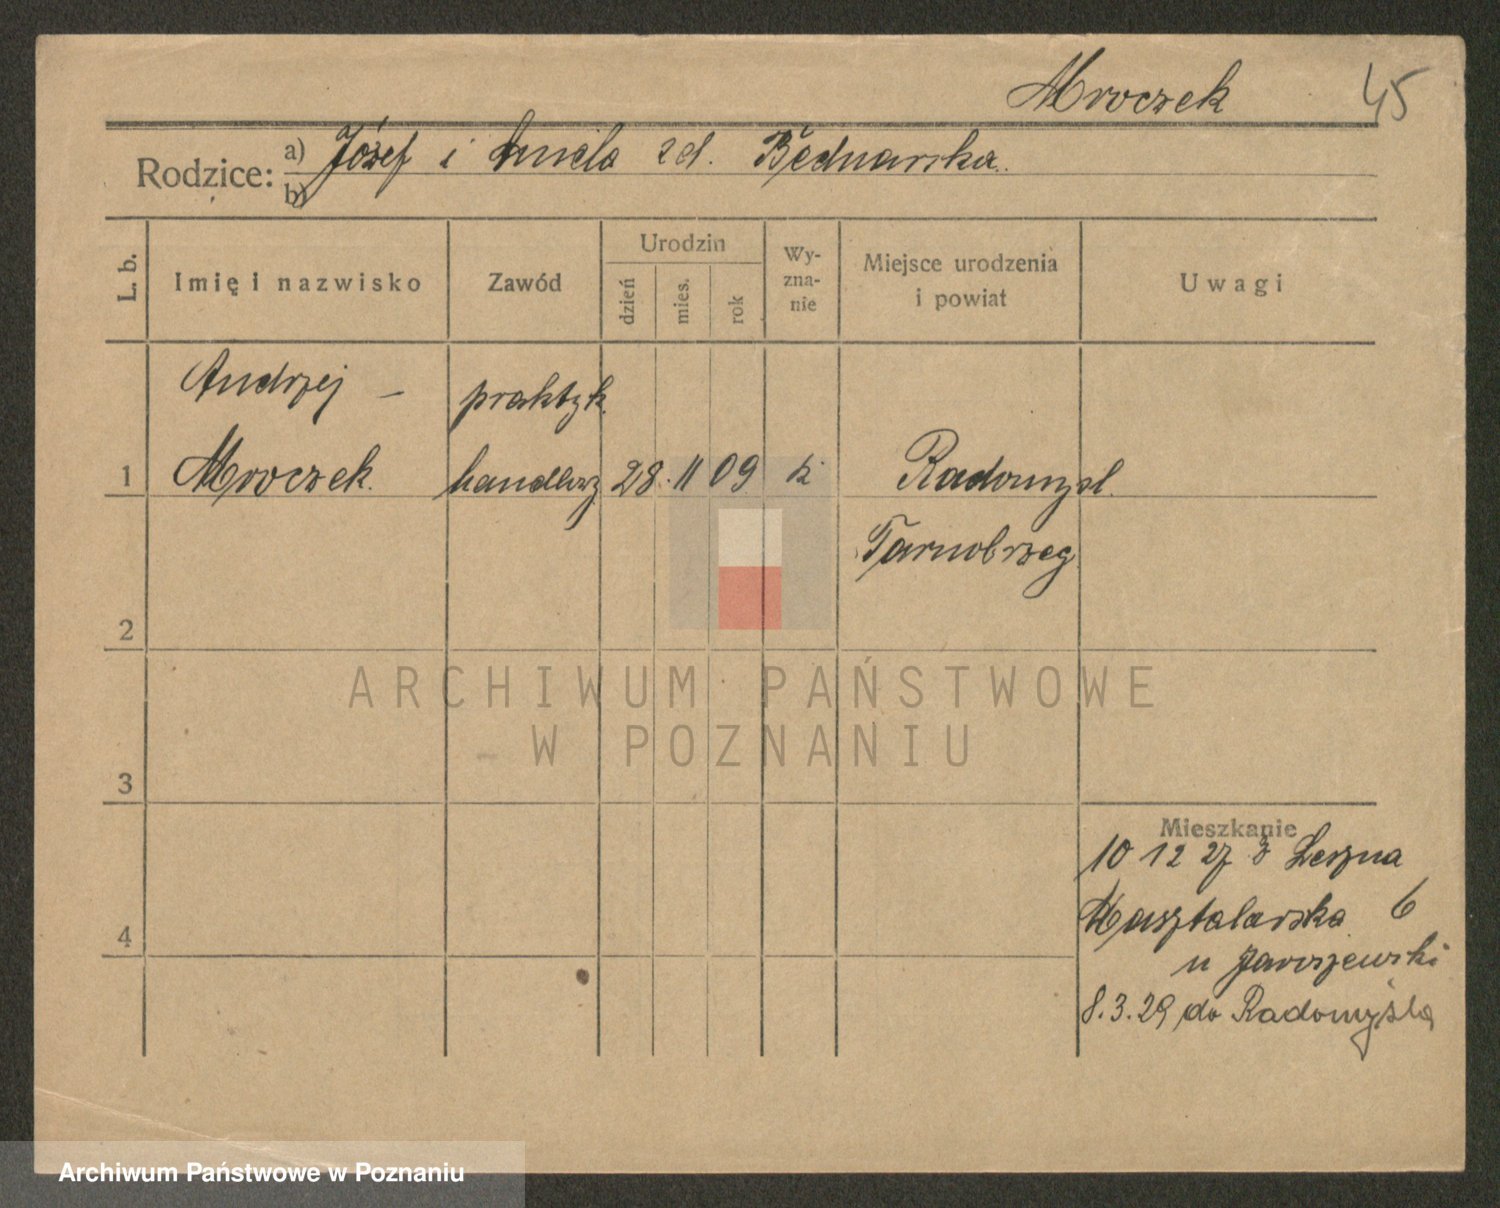 Mroczek 45
Rodzice: a) Józef i Aniela zd. Bednarska
b)
L. b. Imię i nazwisko Zawód Urodzin dzień mies. rok Wy-zna-nie Miejsce urodzenia i powiat Uwagi
Andrzej – praktyk.
1 Mroczek. handlowy 28. 11 09 k Radomyśl.
Tarnobrzeg
2
ARCHIWUM PAŃSTWOWE
W POZNANIU
3
Mieszkanie
10 12 27 z Leszna
4 Masztalarska 6
u Jaroszewski
8.3.29 do Radomyśla
Archiwum Państwowe w Poznaniu